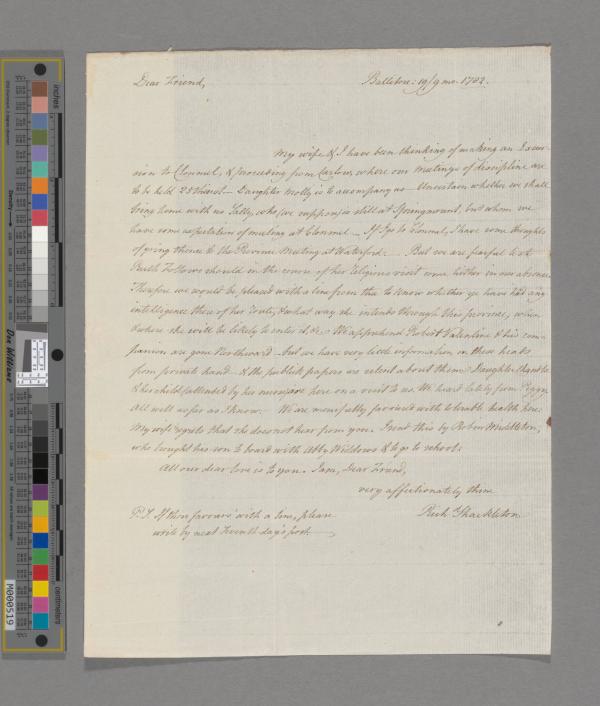 Dear Friend, Ballitore: 19/9 mo. 1782.
My wife & I have been thinking of making an Excur-
sion to Clonmel, & proceeding from Carlow, where our meetings of discipline are
to be held 28th inst. — Daughter Molly is to accompany us — Uncertain whether we shall
bring home with us Sally, who (we suppose) is still at Springmount, but whom we
have some expectation of meeting at Clonmel — If I go to Clonmel, I have some thoughts
of going thence to the Province Meeting at Waterford. — But we are fearful lest
Ruth Follows should in the course of her religious visit come hither in our absence
Therefore we would be pleased with a line from thee to know whether ye have had any
intelligence there of her route, & what way she intends through this province, when
& where she will be likely to enter it, &c. We apprehend Robert Valentine & his com-
panion are gone Northward — but we have very little information on these heads
from private hand — & the publick papers are silent about them. Daughter
& her child (attended by her nurse) are here on a visit to us. We heard lately from Peggy
All well as far as I know. We are mercifully favoured with tolerable health here.
My wife regrets that she does not hear from you. I send this by Robin Middleton,
who brought his son to board with Abby Widdows & to go to school.
All our dear love is to you. I am, Dear Friend,
very affectionately thine
Rich Shackleton
P.S. If thou favours with a line, please
write by next Seventh day's post
inches
centimeters
Density
Don Williams
M000519